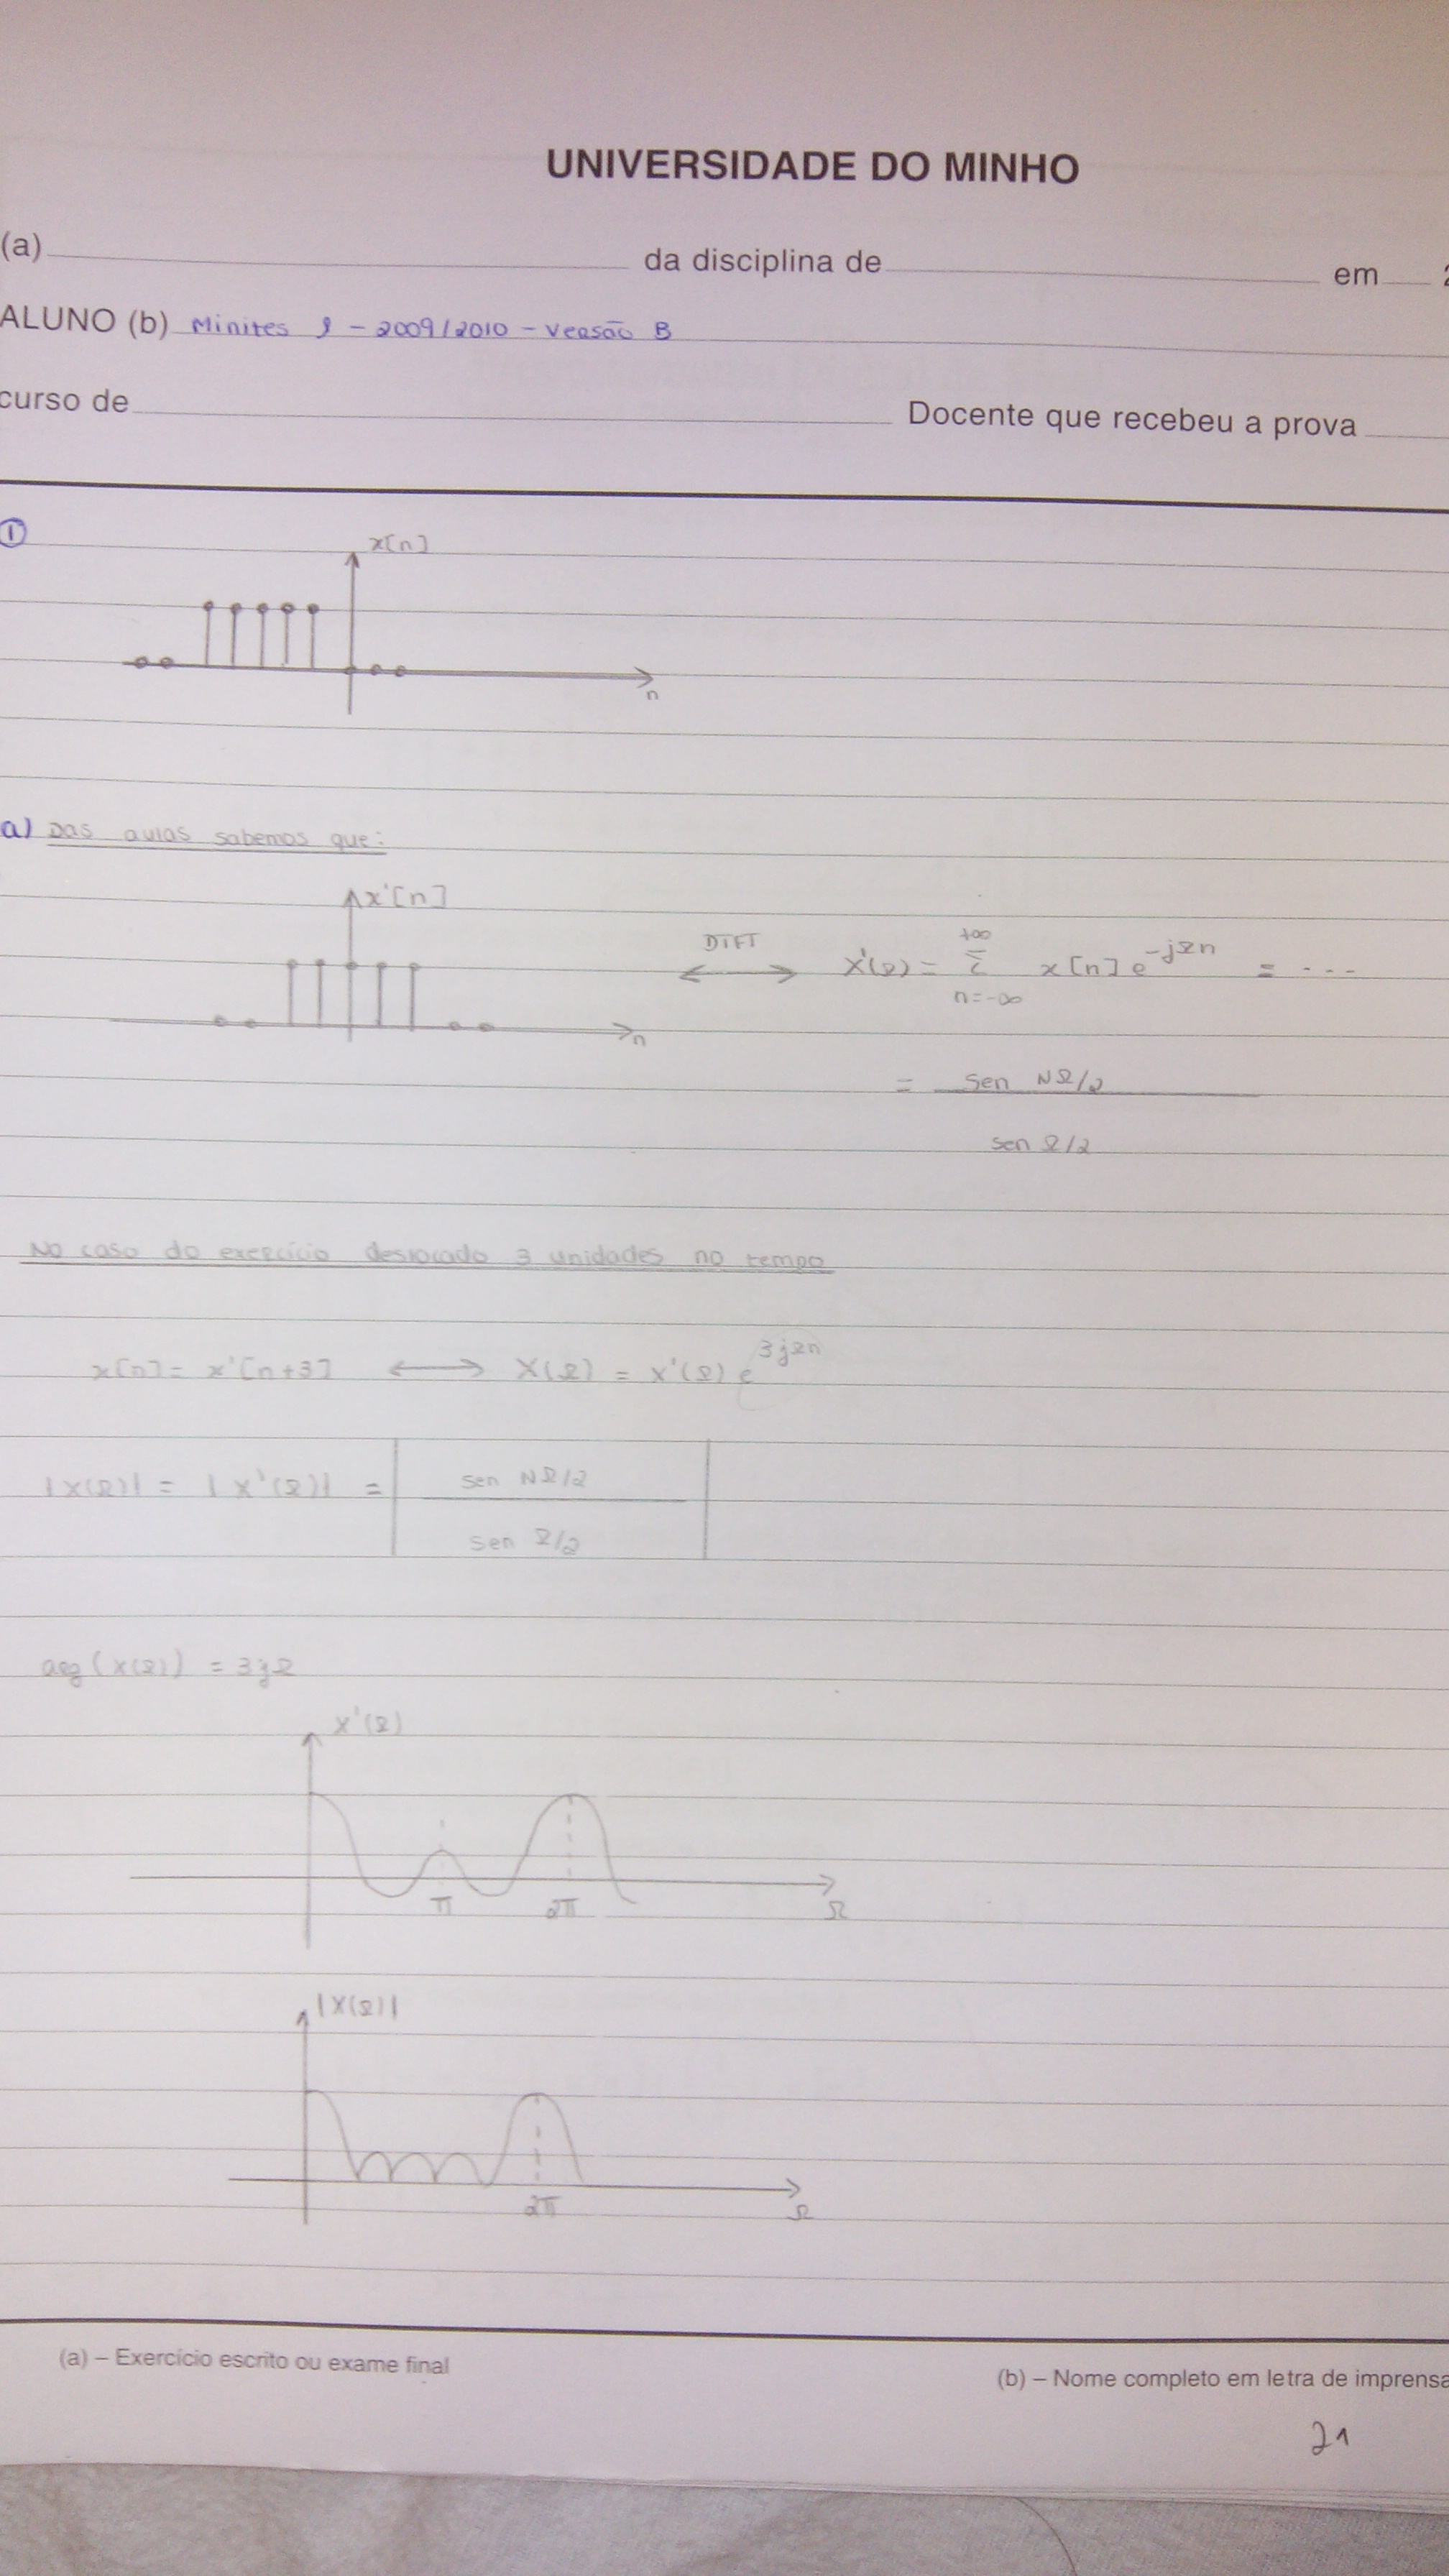 UNIVERSIDADE DO MINHO
(a) da disciplina de em 2
ALUNO (b) Minites 1 - 2009/2010 - Versão B
curso de Docente que recebeu a prova
①
x[n]
n
a) Das aulas sabemos que:
x'[n]
n
DTFT
X'(Ω) = Σ x[n] e^-jΩn = ...
+∞
n=-∞
= sen NΩ/2
sen Ω/2
No caso do exercício deslocado 3 unidades no tempo
x[n] = x'[n+3] ⟷ X(Ω) = x'(Ω) e^3jΩn
|X(Ω)| = |X'(Ω)| = | sen NΩ/2
sen Ω/2 |
arg(X(Ω)) = 3jΩ
X'(Ω)
π 2π Ω
|X(Ω)|
2π Ω
(a) – Exercício escrito ou exame final
(b) – Nome completo em letra de imprensa
21